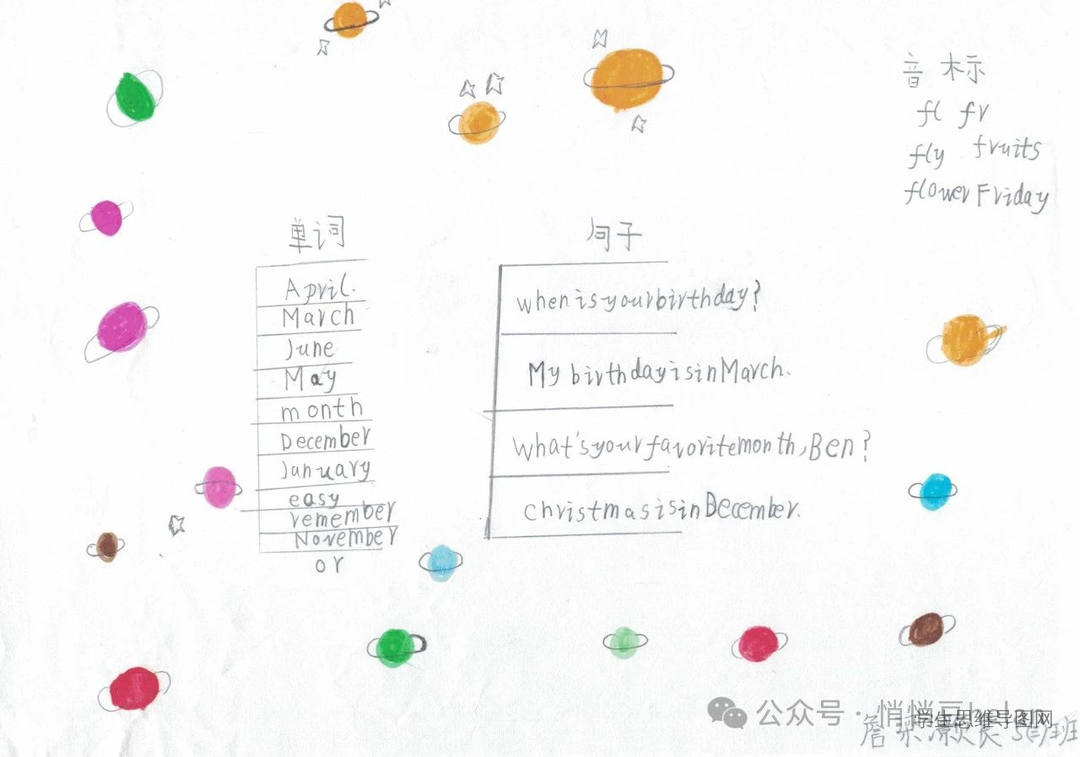 音标
fl fr
fly fruits
flower Friday
单词
April.
March
June
May
month
December
January
easy
remember
November
or
句子
when is your birthday?
My birthday is in March.
What's your favorite month, Ben?
christmas is in December.
公众号·悄悄豆
学生思维导图网